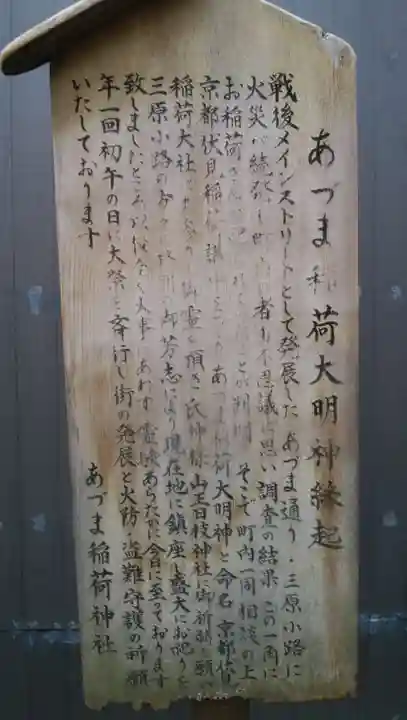 あづま稲荷大明神縁起
戦後メインストリートとして発展したあづま通り・三原小路に
火災が続発し町の者も不思議に思い調査の結果この一角に
お稲荷さんが ことが判明 そこで町内一同相談の上
京都伏見稲荷 あづま稲荷大明神と命名 京都伏見
稲荷大社 御霊を頂き氏神様山王日枝神社に御祈願を願い
三原小路の 御芳志により現在地に鎮座し盛大にお祀りを
致しましたところ以後全く火事 あわず霊験あらたかに今日に至っております
年一回初午の日に大祭を斉行し街の発展と火防・盗難守護の祈願
いたしております
あづま稲荷神社